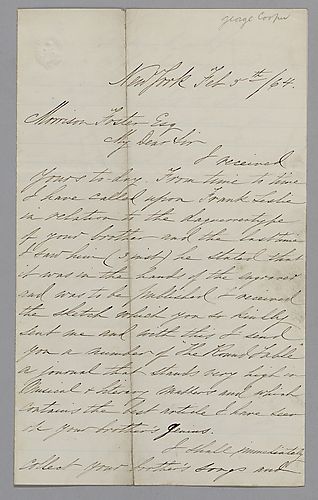 George Cooper
New York Feb 5th/64.
Morrison Foster Esq
My Dear Sir
I received
yours to day. From time to time
I have called upon Frank Leslie
in relation to the daguerreotype
of your brother and the last time
I saw him (3 inst) he stated that
it was in the hands of the engraver
and was to be published. I received
the sketch which you so kindly
sent me and with this I send
you a number of "The Round Table"
a journal that stands very high in
Musical & literary matters and which
contains the best article I have seen
on your brother's Genius.
I shall immediately
collect your brother's songs and